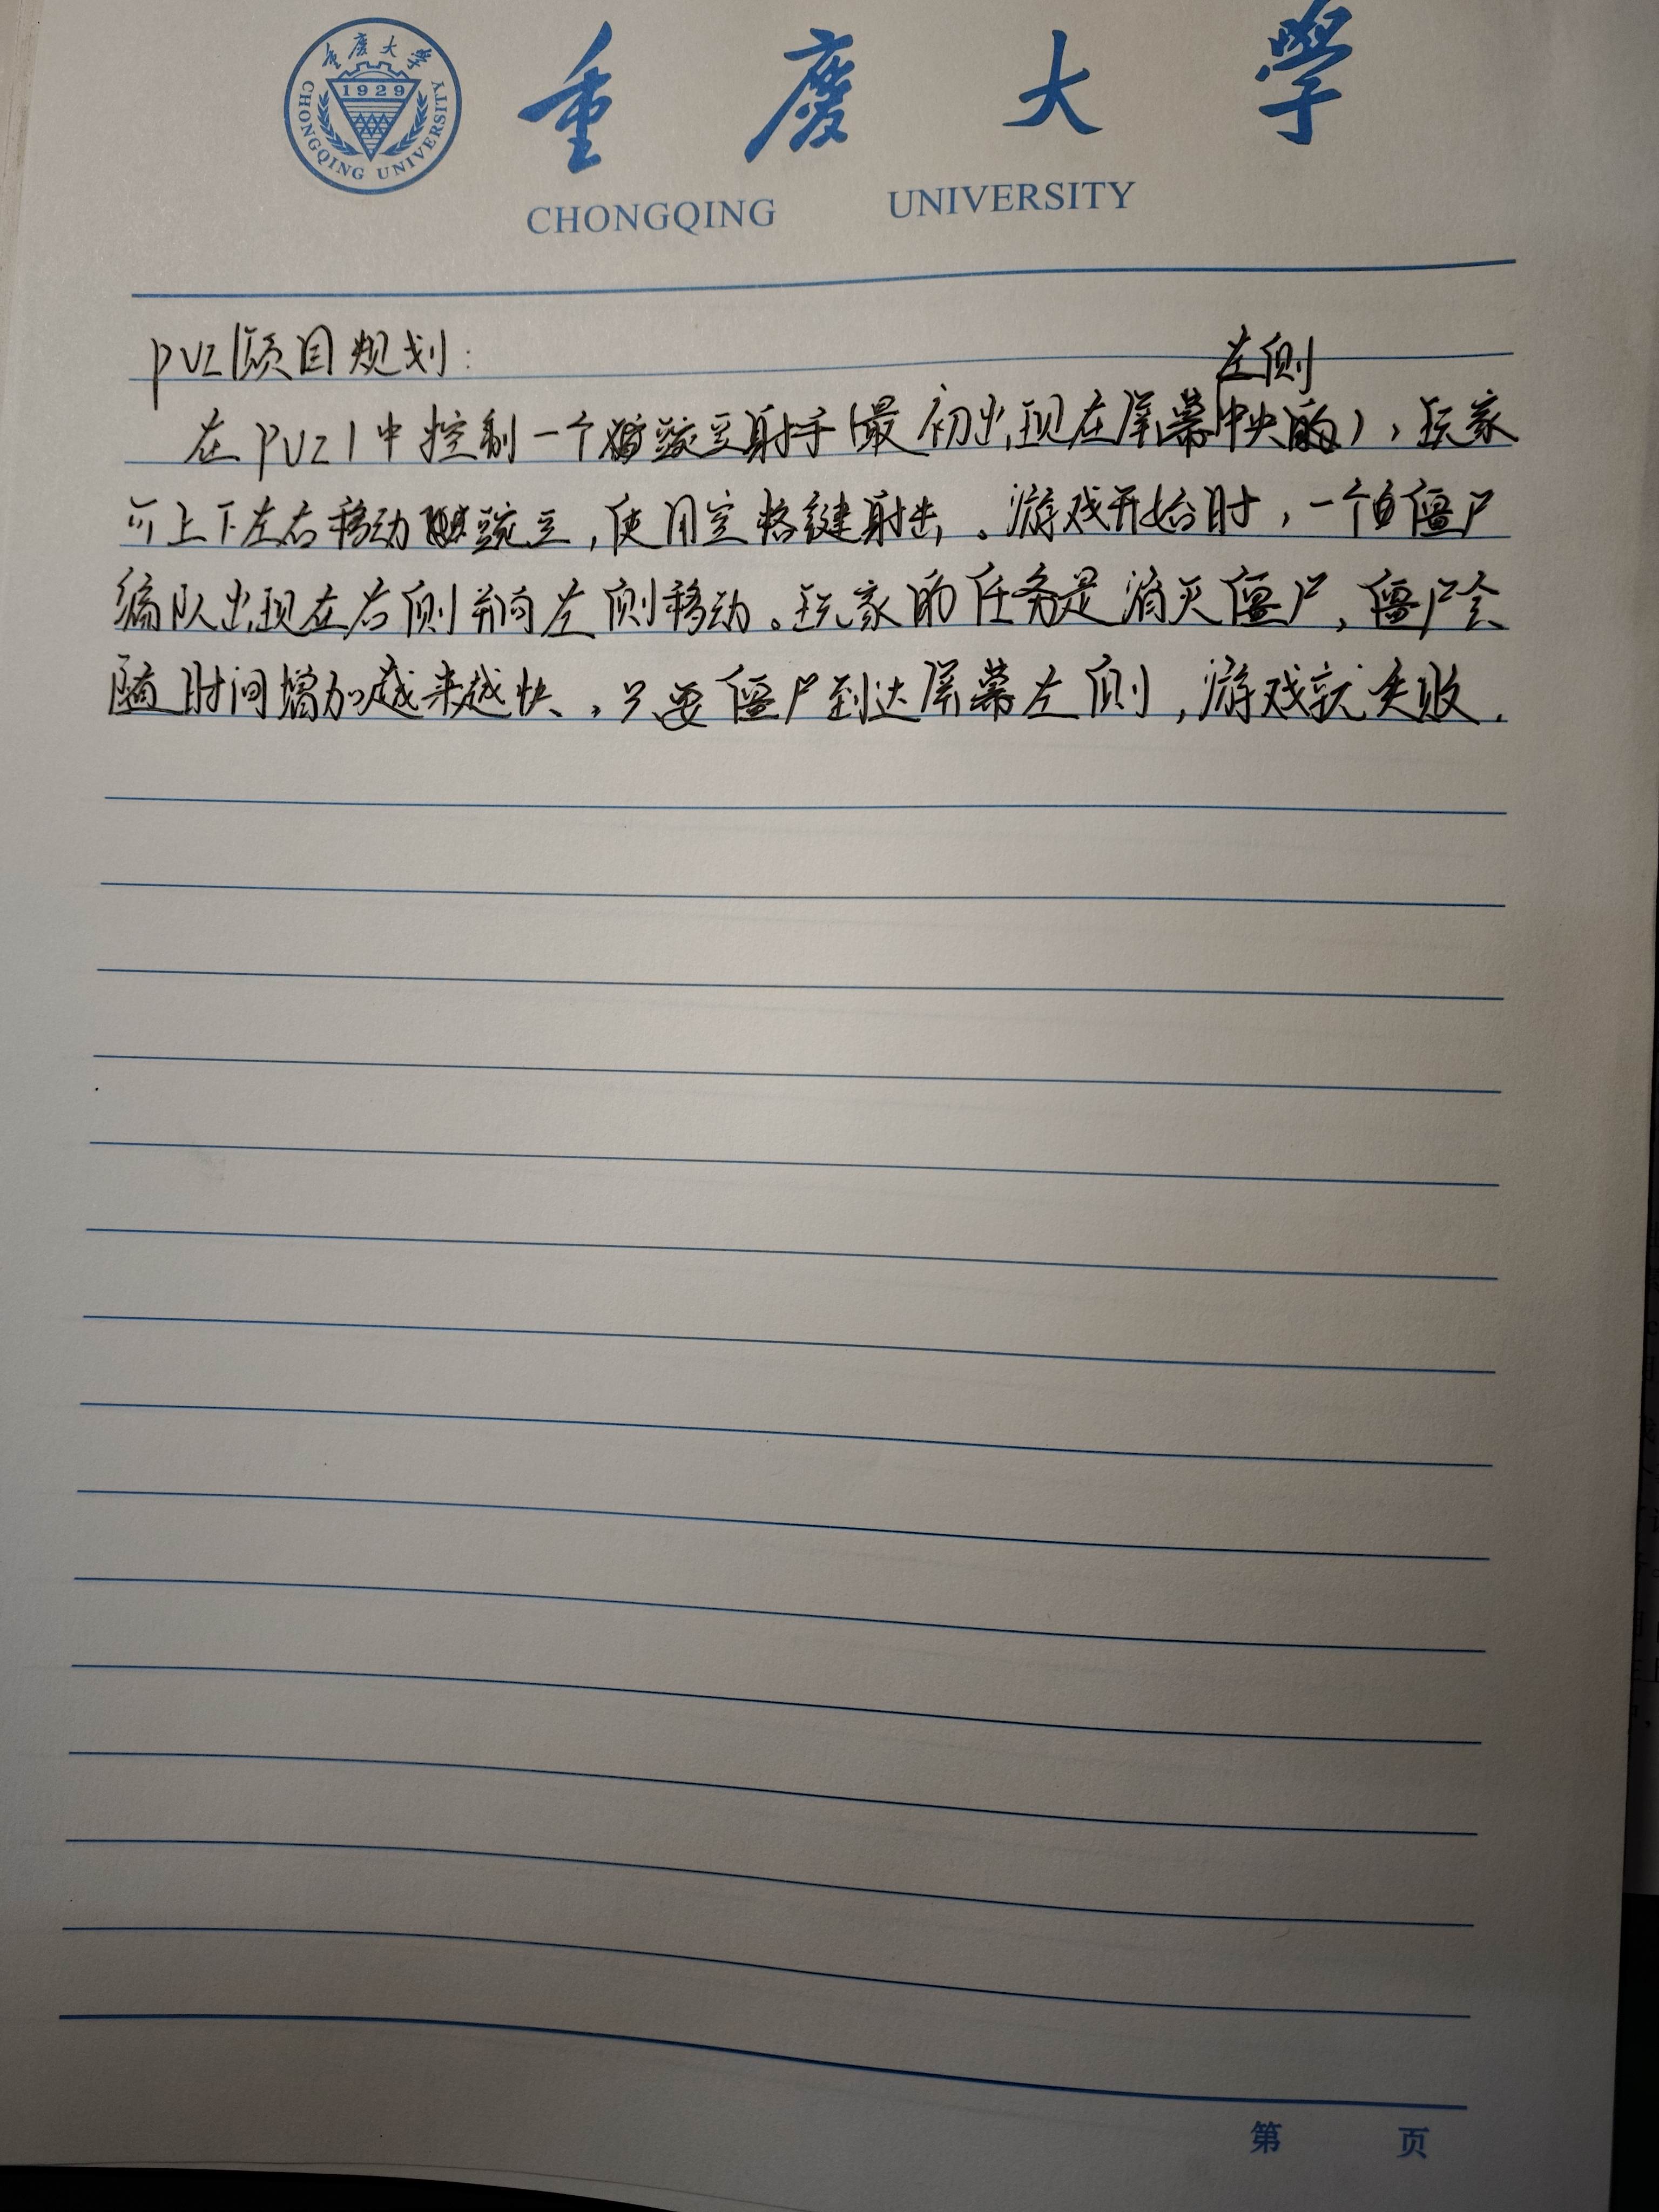 重庆大学
1929
CHONGQING UNIVERSITY
重 慶 大 學
CHONGQING UNIVERSITY
pvz1项目规划:
左侧
在pvz1中控制一个豌豆射手(最初出现在屏幕中央的),玩家
可上下左右移动豌豆,使用空格键射击。游戏开始时,一个僵尸
编队出现在右侧并向左侧移动。玩家的任务是消灭僵尸,僵尸会
随时间增加越来越快。只要僵尸到达屏幕左侧,游戏就失败.
第 页